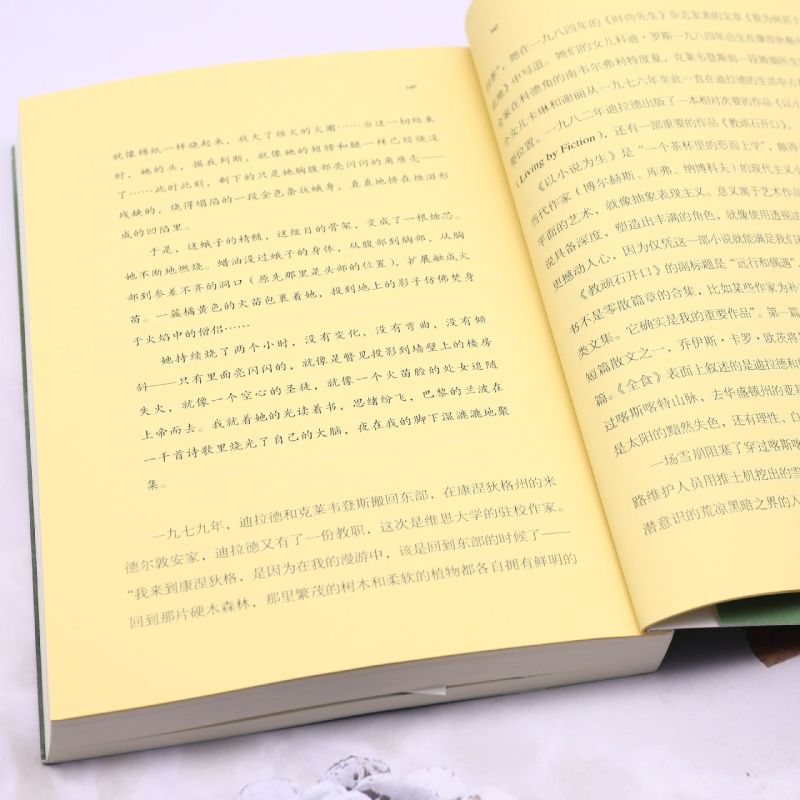 346
就像棉纸一样烧起来，放大了烛火的火圈……当这一切结束
时，她的头，据我判断，就像她的翅膀和腿一样已经烧没
了……此时此刻，剩下的只是她胸腹部亮闪闪的角质壳——
残缺的，烧得塌陷的一段金色条状蛾身，直直地挤在烛泪形
成的凹陷里。
于是，这蛾子的精髓，这炫目的骨架，变成了一根烛芯。
她不断地燃烧。蜡油没过蛾子的身体，从腹部到胸部，从胸
部到参差不齐的洞口（原先那里是头部的位置），扩展融成火
苗。一簇橘黄色的火苗包裹着她，投到地上的影子仿佛焚身
于火焰中的僧侣……
她持续烧了两个小时，没有变化，没有弯曲，没有倾
斜——只有里面亮闪闪的，就像是瞥见投影到墙壁上的楼房
失火，就像一个空心的圣徒，就像一个火苗脸的处女追随
上帝而去。我就着她的光读着书，思绪纷飞，巴黎的兰波在
一千首诗歌里烧光了自己的大脑，夜在我的脚下湿漉漉地聚
集。
一九七九年，迪拉德和克莱韦登斯搬回东部，在康涅狄格州的米
德尔敦安家，迪拉德又有了一份教职，这次是维思大学的驻校作家。
“我来到康涅狄格，是因为在我的漫游中，该是回到东部的时候了——
回到那片硬木森林，那里繁茂的树木和柔软的植物都各自拥有鲜明的
347
，她在一九八四年的《时尚先生》杂志发表的文章《我为何居于
》中写道。她们的女儿科迪·罗斯一九八四年出生在康涅狄格州
家在科德角的南韦尔弗利特度夏，克莱韦登斯前一段婚姻所生
个女儿卡琳和谢丽从一九七六年至此一直在迪拉德的生活中占
要位置。一九八二年迪拉德出版了一本相对次要的作品《以小
（Living by Fiction），还有一部重要的作品《教顽石开口》。
《以小说为生》是“一个茶杯里的形而上学”，颇得
当代作家（博尔赫斯、库弗、纳博科夫）的现代主义小
平面的艺术，就像抽象表现主义。意义寓于艺术作品
说具备深度，塑造出丰满的角色，就像使用透视法
更撼动人心，因为仅凭这一部小说就能满足我们
《教顽石开口》的副标题是“远行和偶遇”，
书不是零散篇章的合集，比如某些作家为补
类文集。它确实是我的重要作品”。第一篇
短篇散文之一，乔伊斯·卡罗·欧茨将
篇。《全食》表面上叙述的是迪拉德和
过喀斯喀特山脉，去华盛顿州的亚
是太阳的黯然失色，还有理性，白
一场雪崩阻塞了穿过喀斯喀
路维护人员用推土机挖出的雪
潜意识的荒凉黑暗之界的入